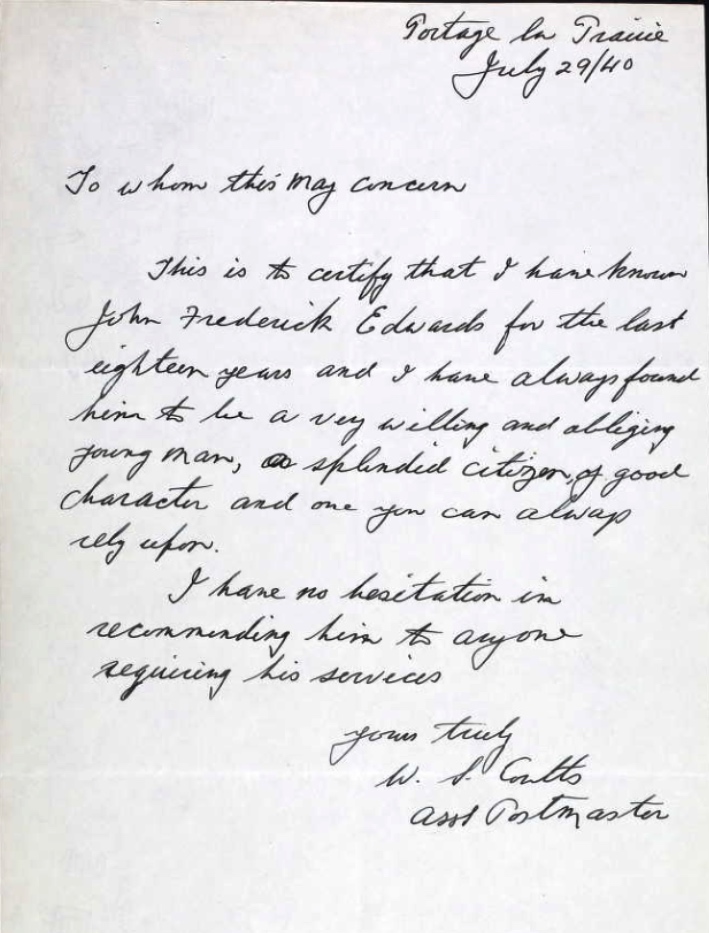 Portage la Prairie
July 29/40
To whom this May Concern
This is to certify that I have known
John Frederick Edwards for the last
eighteen years and I have always found
him to be a very willing and obliging
young man, a splendid citizen, of good
character and one you can always
rely upon.
I have no hesitation in
recommending him to anyone
requiring his services
yours truly
W. S. Coutts
asst Postmaster